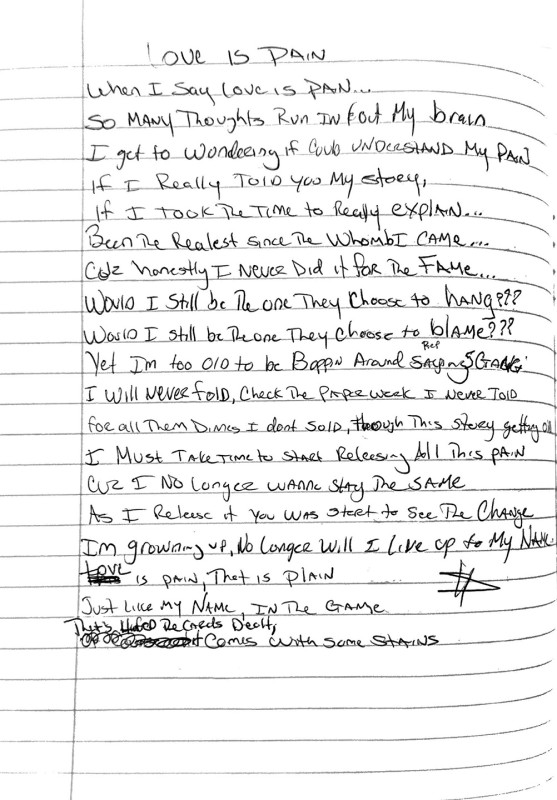 LOVE IS PAIN
When I Say Love is PAN...
SO MANY Thoughts Run IN & out My brain
I get to Wondering if Could UNDERSTAND My PAIN
If I Really TOLD you My story,
If I TOOK The TIME to Really explain...
Been The Realest since The Whomb I CAME...
Cuz honestly I NEVER Did it for The FAME...
Would I Still be The one They Choose to HANG???
Would I still be The one They Choose to blAME???
Yet Im too old to be Boppn Around Rep SAying GANG
I Will Never fold, Check The Paper week I Never Told
for all Them Dimes I dont Sold, though This story getting old
I Must Take Time to Start Releasing All This PAIN
Cuz I No Longer WANNA Stay The SAME
As I Release it You Was Start to See The Change
I'm growning up, No Longer Will I Live up to My NAME
Love is PAIN, That is PlAIN
Just Like My NAME, IN The GAME
That's The Cards Dealt,
it Comes With Some STAINS